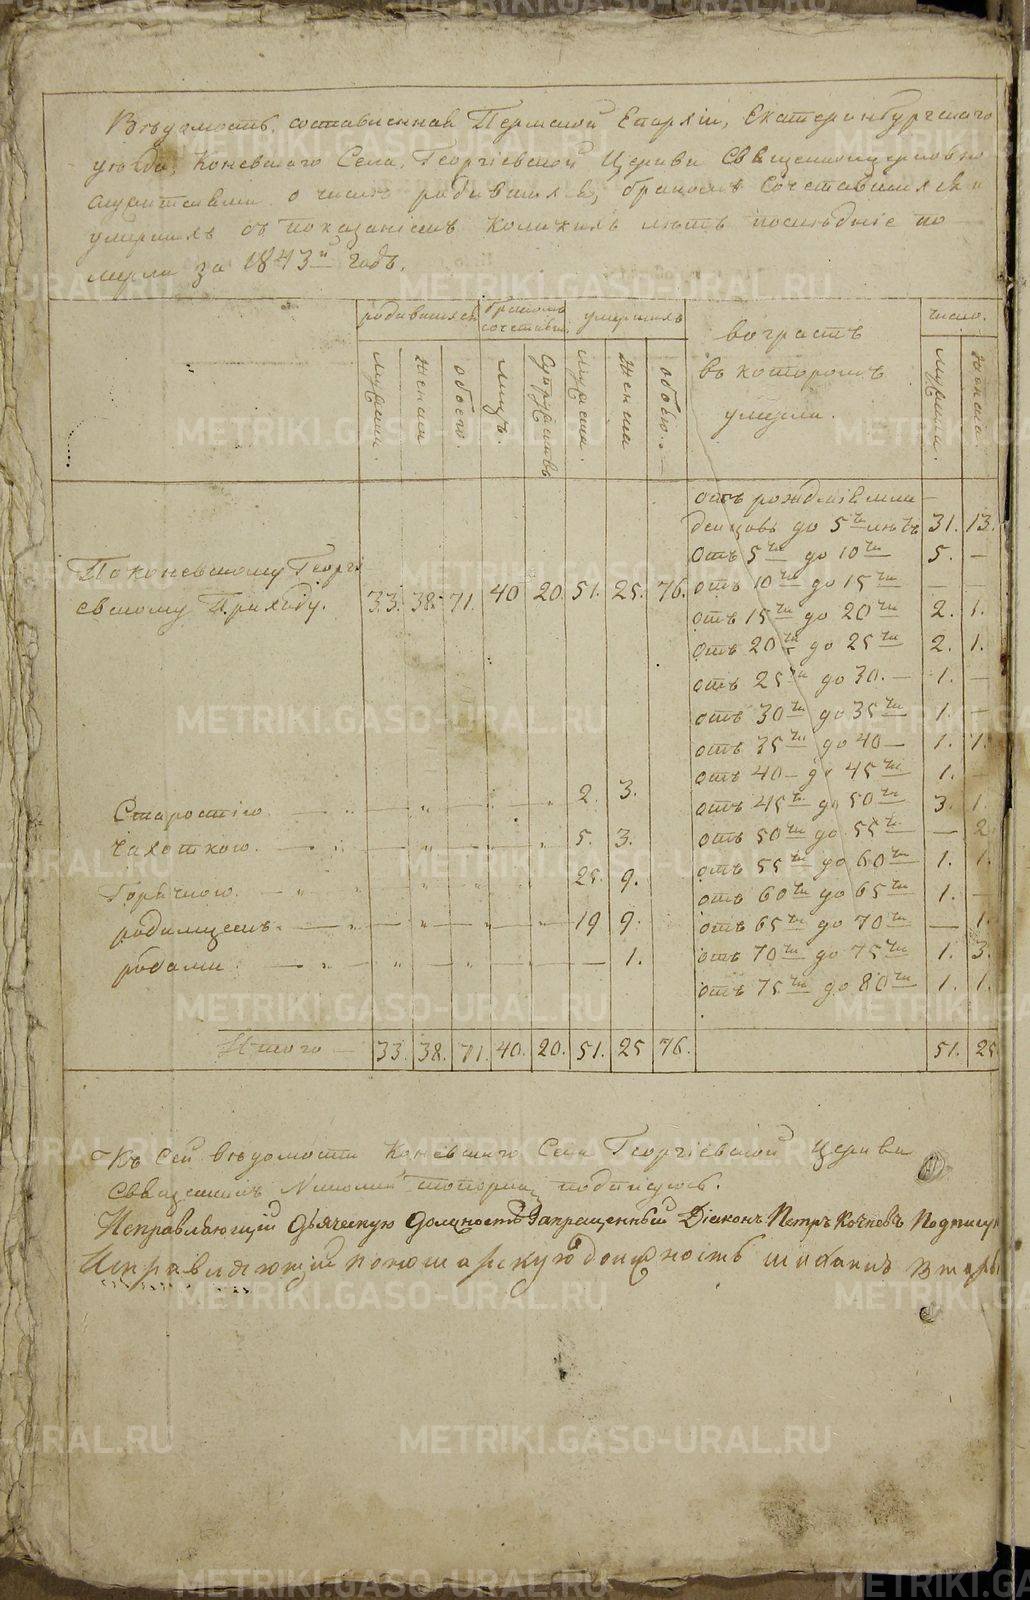 Вѣдомость, составленная Пермской Епархіи, Екатеринбургскаго
уѣзда, Коневскаго Села, Георгіевской Церкви Священноцерковно
служителями о числѣ родившихся, бракомъ сочетавшихся и
умершихъ съ показаніемъ коликихъ лѣтъ послѣдніе по
мерли за 1843й годъ.
родившихся бракомъ сочетавш. умершихъ возрастъ въ которомъ умерли. число.
мужска. женска обоего. лицъ. Супружествъ мужска. женска обоего. мужска. женска.
отъ рожденія мла-
денцовъ до 5ти лѣтъ 31. 13.
отъ 5ти до 10ти 5. —
По Коневскому Георгі
евскому Приходу. 33. 38. 71. 40 20. 51. 25. 76.
отъ 10ти до 15ти — —
отъ 15ти до 20ти 2. 1.
отъ 20ти до 25ти 2. 1.
отъ 25ти до 30. — 1. —
отъ 30ти до 35ти 1. —
отъ 35ти до 40 — 1. 1.
отъ 40 — до 45ти 1. —
Старостію. 2. 3.
отъ 45ти до 50ти 3. 1.
Чахоткою. 5. 3.
отъ 50ти до 55ти — 2.
отъ 55ти до 60ти 1. 1.
Горячкою. 25. 9.
отъ 60ти до 65ти 1. —
родимцемъ. 19 9.
отъ 65ти до 70ти — 1.
родами. — 1.
отъ 70ти до 75ти 1. 3.
отъ 75ти до 80ти 1. 1.
Итого — 33. 38. 71. 40. 20. 51. 25 76. 51. 25
Къ сей вѣдомости Коневскаго Села Георгіевской Церкви
Священникъ Николай подписуюсь.
Исправляющій дьяческую должность Запрещенный Діаконъ Петръ Кочневъ Подпису
Исправляющій пономарскую должность
METRIKI.GASO-URAL.RU